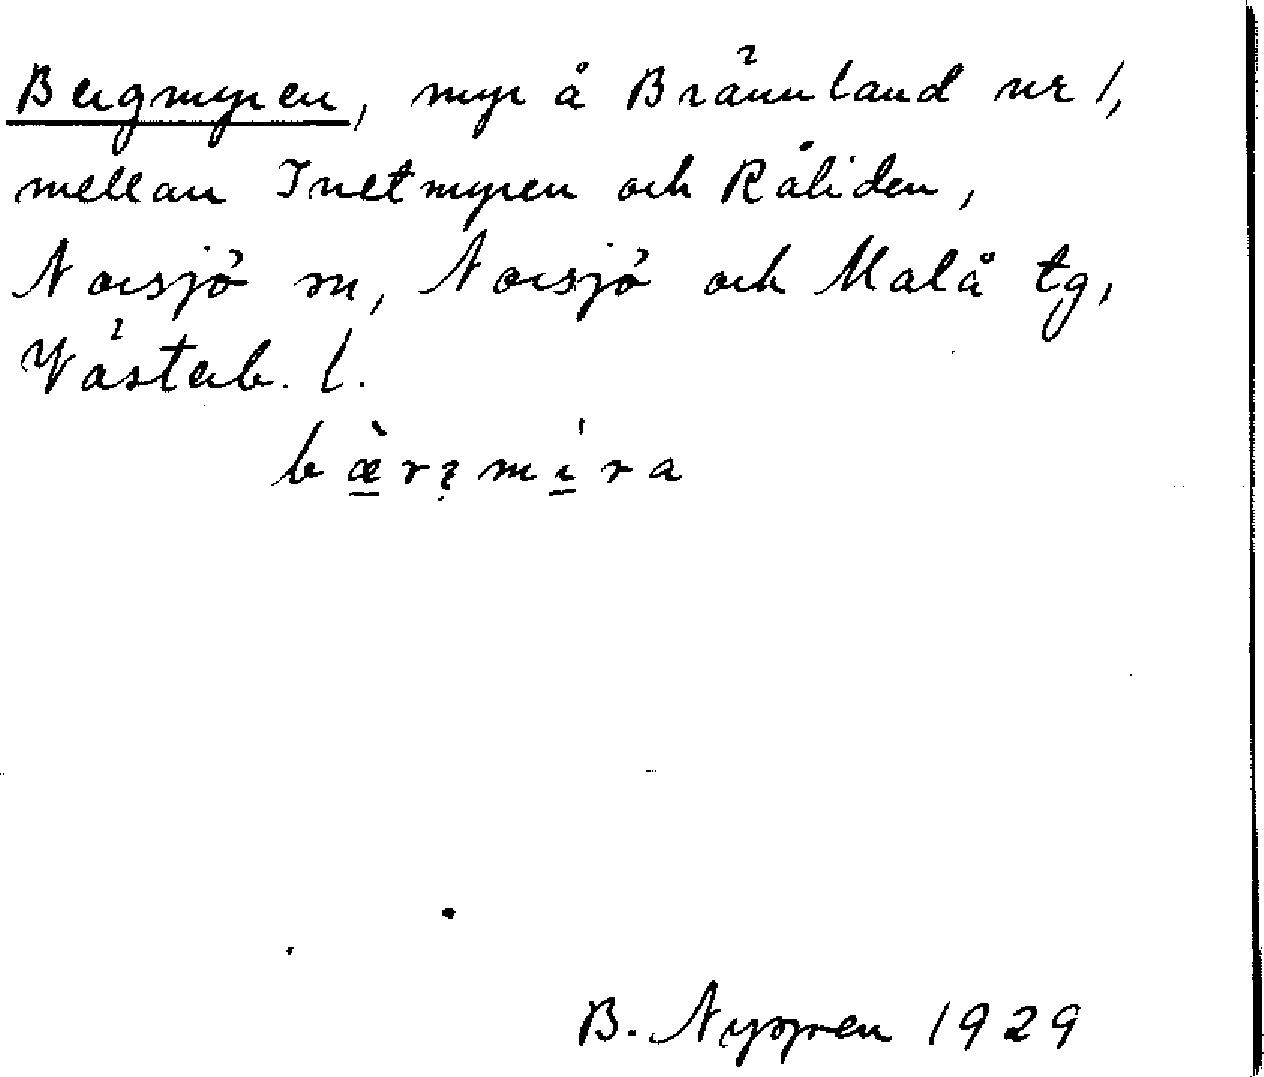 Bergmyren, myr å Brännland nr 1,
mellan Inetmyren och Råliden,
Norsjö sn, Norsjö och Malå tg,
Västerb. l.
bæ̀rɡmíra
B. Nygren 1929